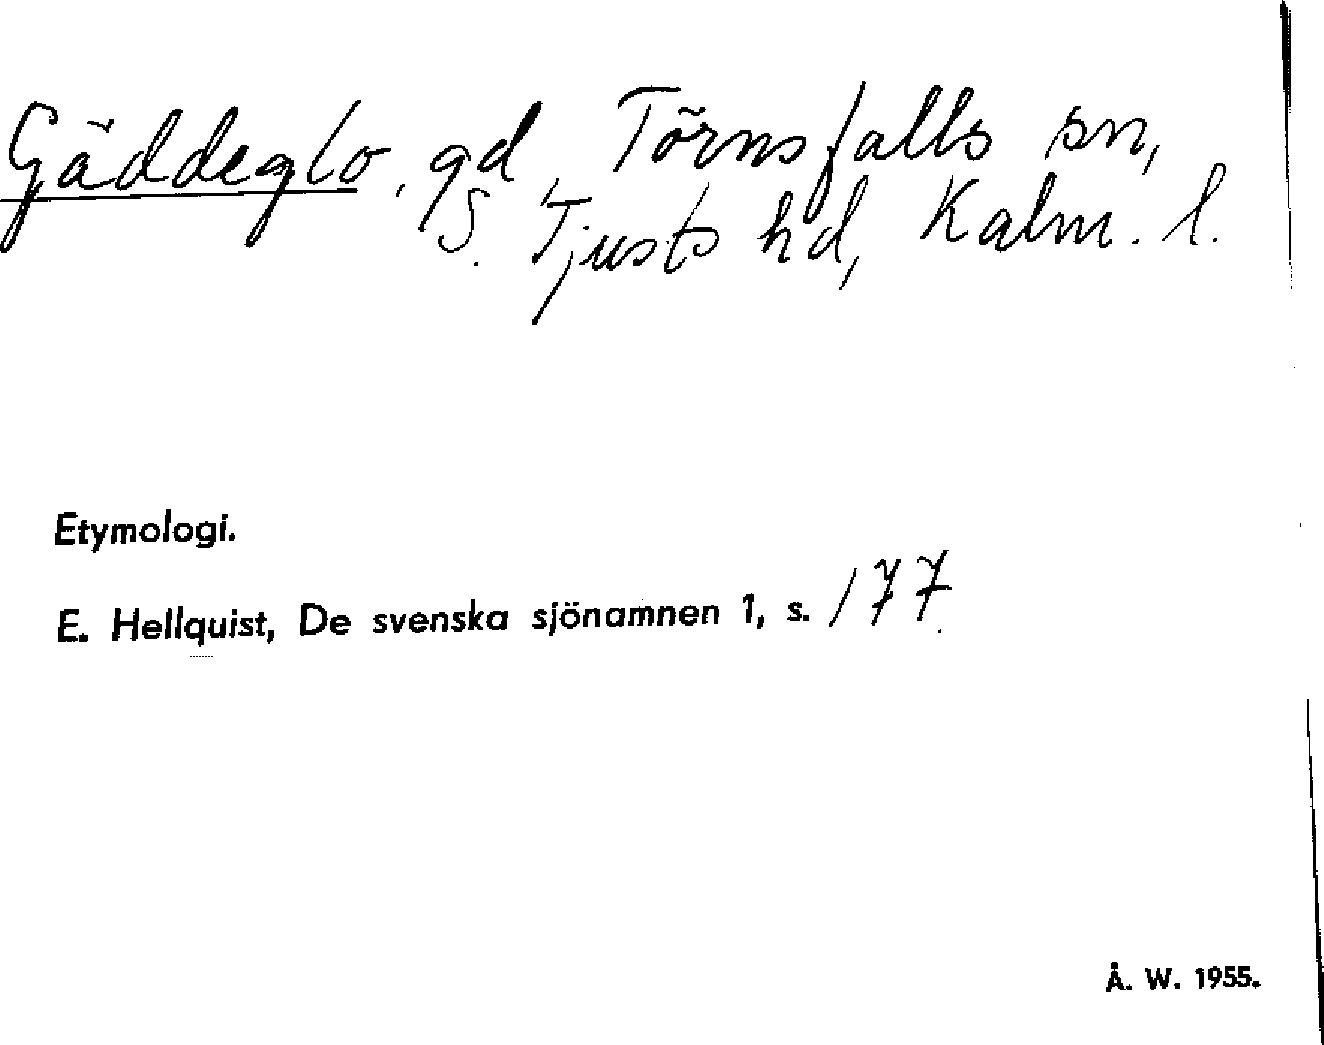 Gäddeglo, gd, Törnsfalls sn,
S. Tjusts hd, Kalm. l.
Etymologi.
E. Hellquist, De svenska sjönamnen 1, s. 177.
Å. W. 1955.